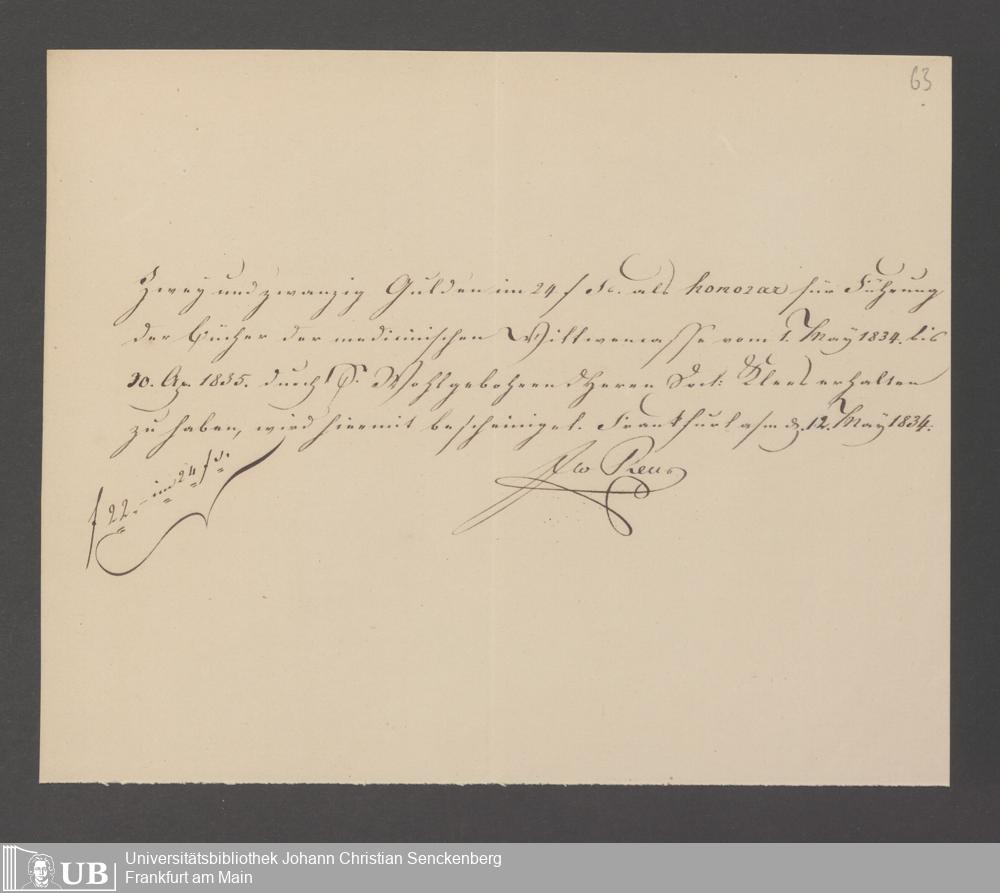 63
Zwey und zwanzig Gulden im 24 f als honorar für Führung
der Bücher der medicinischen Wittwencasse vom 1. May 1834. bis
30. Ap. 1835. durch S. Wohlgebohren d Herrn Doct: Kloos erhalten
zu haben, wird hiermit bescheiniget. Frankfurt a/m d. 12. May 1834.
f 22.– im 24 f
Universitätsbibliothek Johann Christian Senckenberg
UB Frankfurt am Main